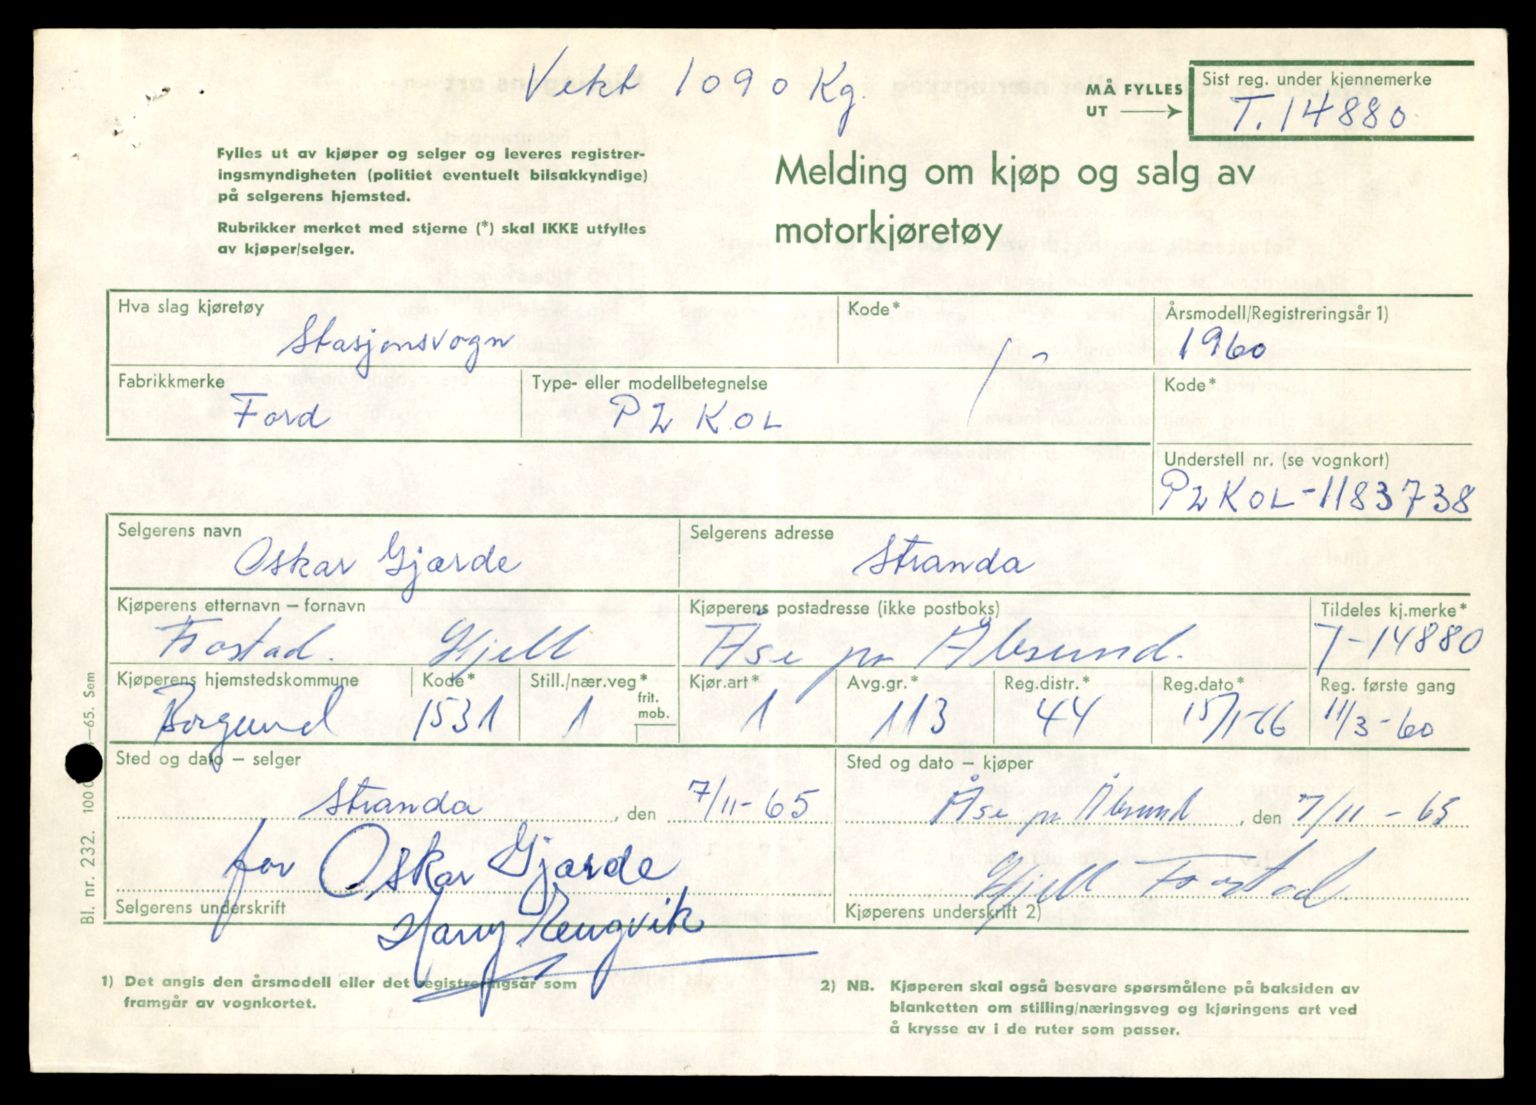 Vekt 1090 Kg.
MÅ FYLLES
UT
Sist reg. under kjennemerke
T. 14880
Fylles ut av kjøper og selger og leveres registrer-
ingsmyndigheten (politiet eventuelt bilsakkyndige)
på selgerens hjemsted.
Rubrikker merket med stjerne (*) skal IKKE utfylles
av kjøper/selger.
Melding om kjøp og salg av
motorkjøretøy
Hva slag kjøretøy
Stasjonsvogn
Kode*
Årsmodell/Registreringsår 1)
1960
Fabrikkmerke
Ford
Type- eller modellbetegnelse
PZKOL
Kode*
Understell nr. (se vognkort)
PZKOL-1183738
Selgerens navn
Oskar Gjærde
Selgerens adresse
Stranda
Kjøperens etternavn – fornavn
Frostad. Kjell
Kjøperens postadresse (ikke postboks)
Åse pr Ålesund.
Tildeles kj.merke*
T-14880
Kjøperens hjemstedskommune
Borgund
Kode*
1531
Still./nær.veg*
1
frit.
mob.
Kjør.art*
1
Avg.gr.*
113
Reg.distr.*
44
Reg.dato*
15/1-66
Reg. første gang
11/3-60
Sted og dato – selger
Stranda, den 7/11-65
Sted og dato – kjøper
Åse pr Ålesund, den 7/11-65
for Oskar Gjærde
Selgerens underskrift
Kjell Frostad.
Kjøperens underskrift 2)
1) Det angis den årsmodell eller det registreringsår som
framgår av vognkortet.
2) NB. Kjøperen skal også besvare spørsmålene på baksiden av
blanketten om stilling/næringsveg og kjøringens art ved
å krysse av i de ruter som passer.
Bl. nr. 232. 65. Sem